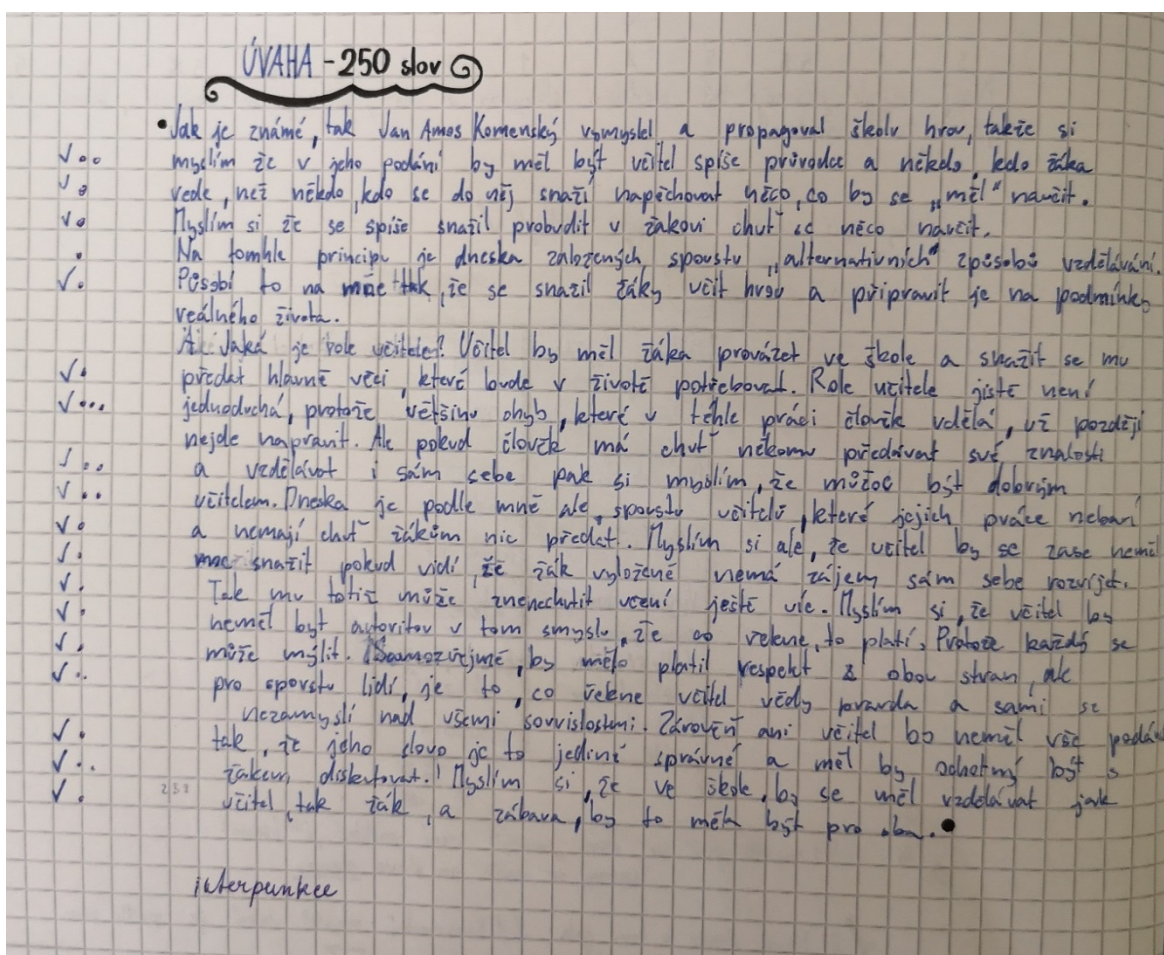 ÚVAHA - 250 slov
Jak je známé, tak Jan Amos Komenský vymyslel a propagoval školu hrou, takže si
myslím že v jeho podání by měl být učitel spíše průvodce a někdo, kdo žáka
vede, než někdo, kdo se do něj snaží napěchovat něco, co by se „měl" naučit.
Myslím si, že se spíše snažil probudit v žákovi chuť se něco naučit.
Na tomhle principu je dneska založených spoustu „alternativních" způsobů vzdělávání.
Působí to na mne tak, že se snažil žáky učit hrou a připravit je na podmínky
reálného života.
Jaká je role učitele? Učitel by měl žáka provázet ve škole a snažit se mu
předat hlavně věci, které bude v životě potřebovat. Role učitele jistě není
jednoduchá, protože většinu chyb, které v téhle práci člověk udělá, už později
nejde napravit. Ale pokud člověk má chuť někomu předávat své znalosti
a vzdělávat i sám sebe pak si myslím, že může být dobrým
učitelem. Dneska je podle mně ale, spoustu učitelů, které jejich práce nebaví
a nemají chuť žákům nic předat. Myslím si ale, že učitel by se zase neměl
moc snažit pokud vidí, že žák vyloženě nemá zájem sám sebe rozvíjet.
Tak mu totiž může znenechutit učení ještě víc. Myslím si, že učitel by
neměl být autoritou v tom smyslu, že co řekne, to platí, Protože každý se
může mýlit. Samozřejmě, by mělo platil respekt z obou stran, ale
pro spoustu lidí, je to, co řekne učitel vždy pravda a sami se
nezamyslí nad všemi souvislostmi. Zároveň ani učitel by neměl vše podávat
tak, že jeho slovo je to jediné správné a měl by ochotný být s
žákem diskutovat. Myslím si, že ve škole, by se měl vzdělávat jak
258
učitel, tak žák, a zábava, by to měla být pro oba.
interpunkce